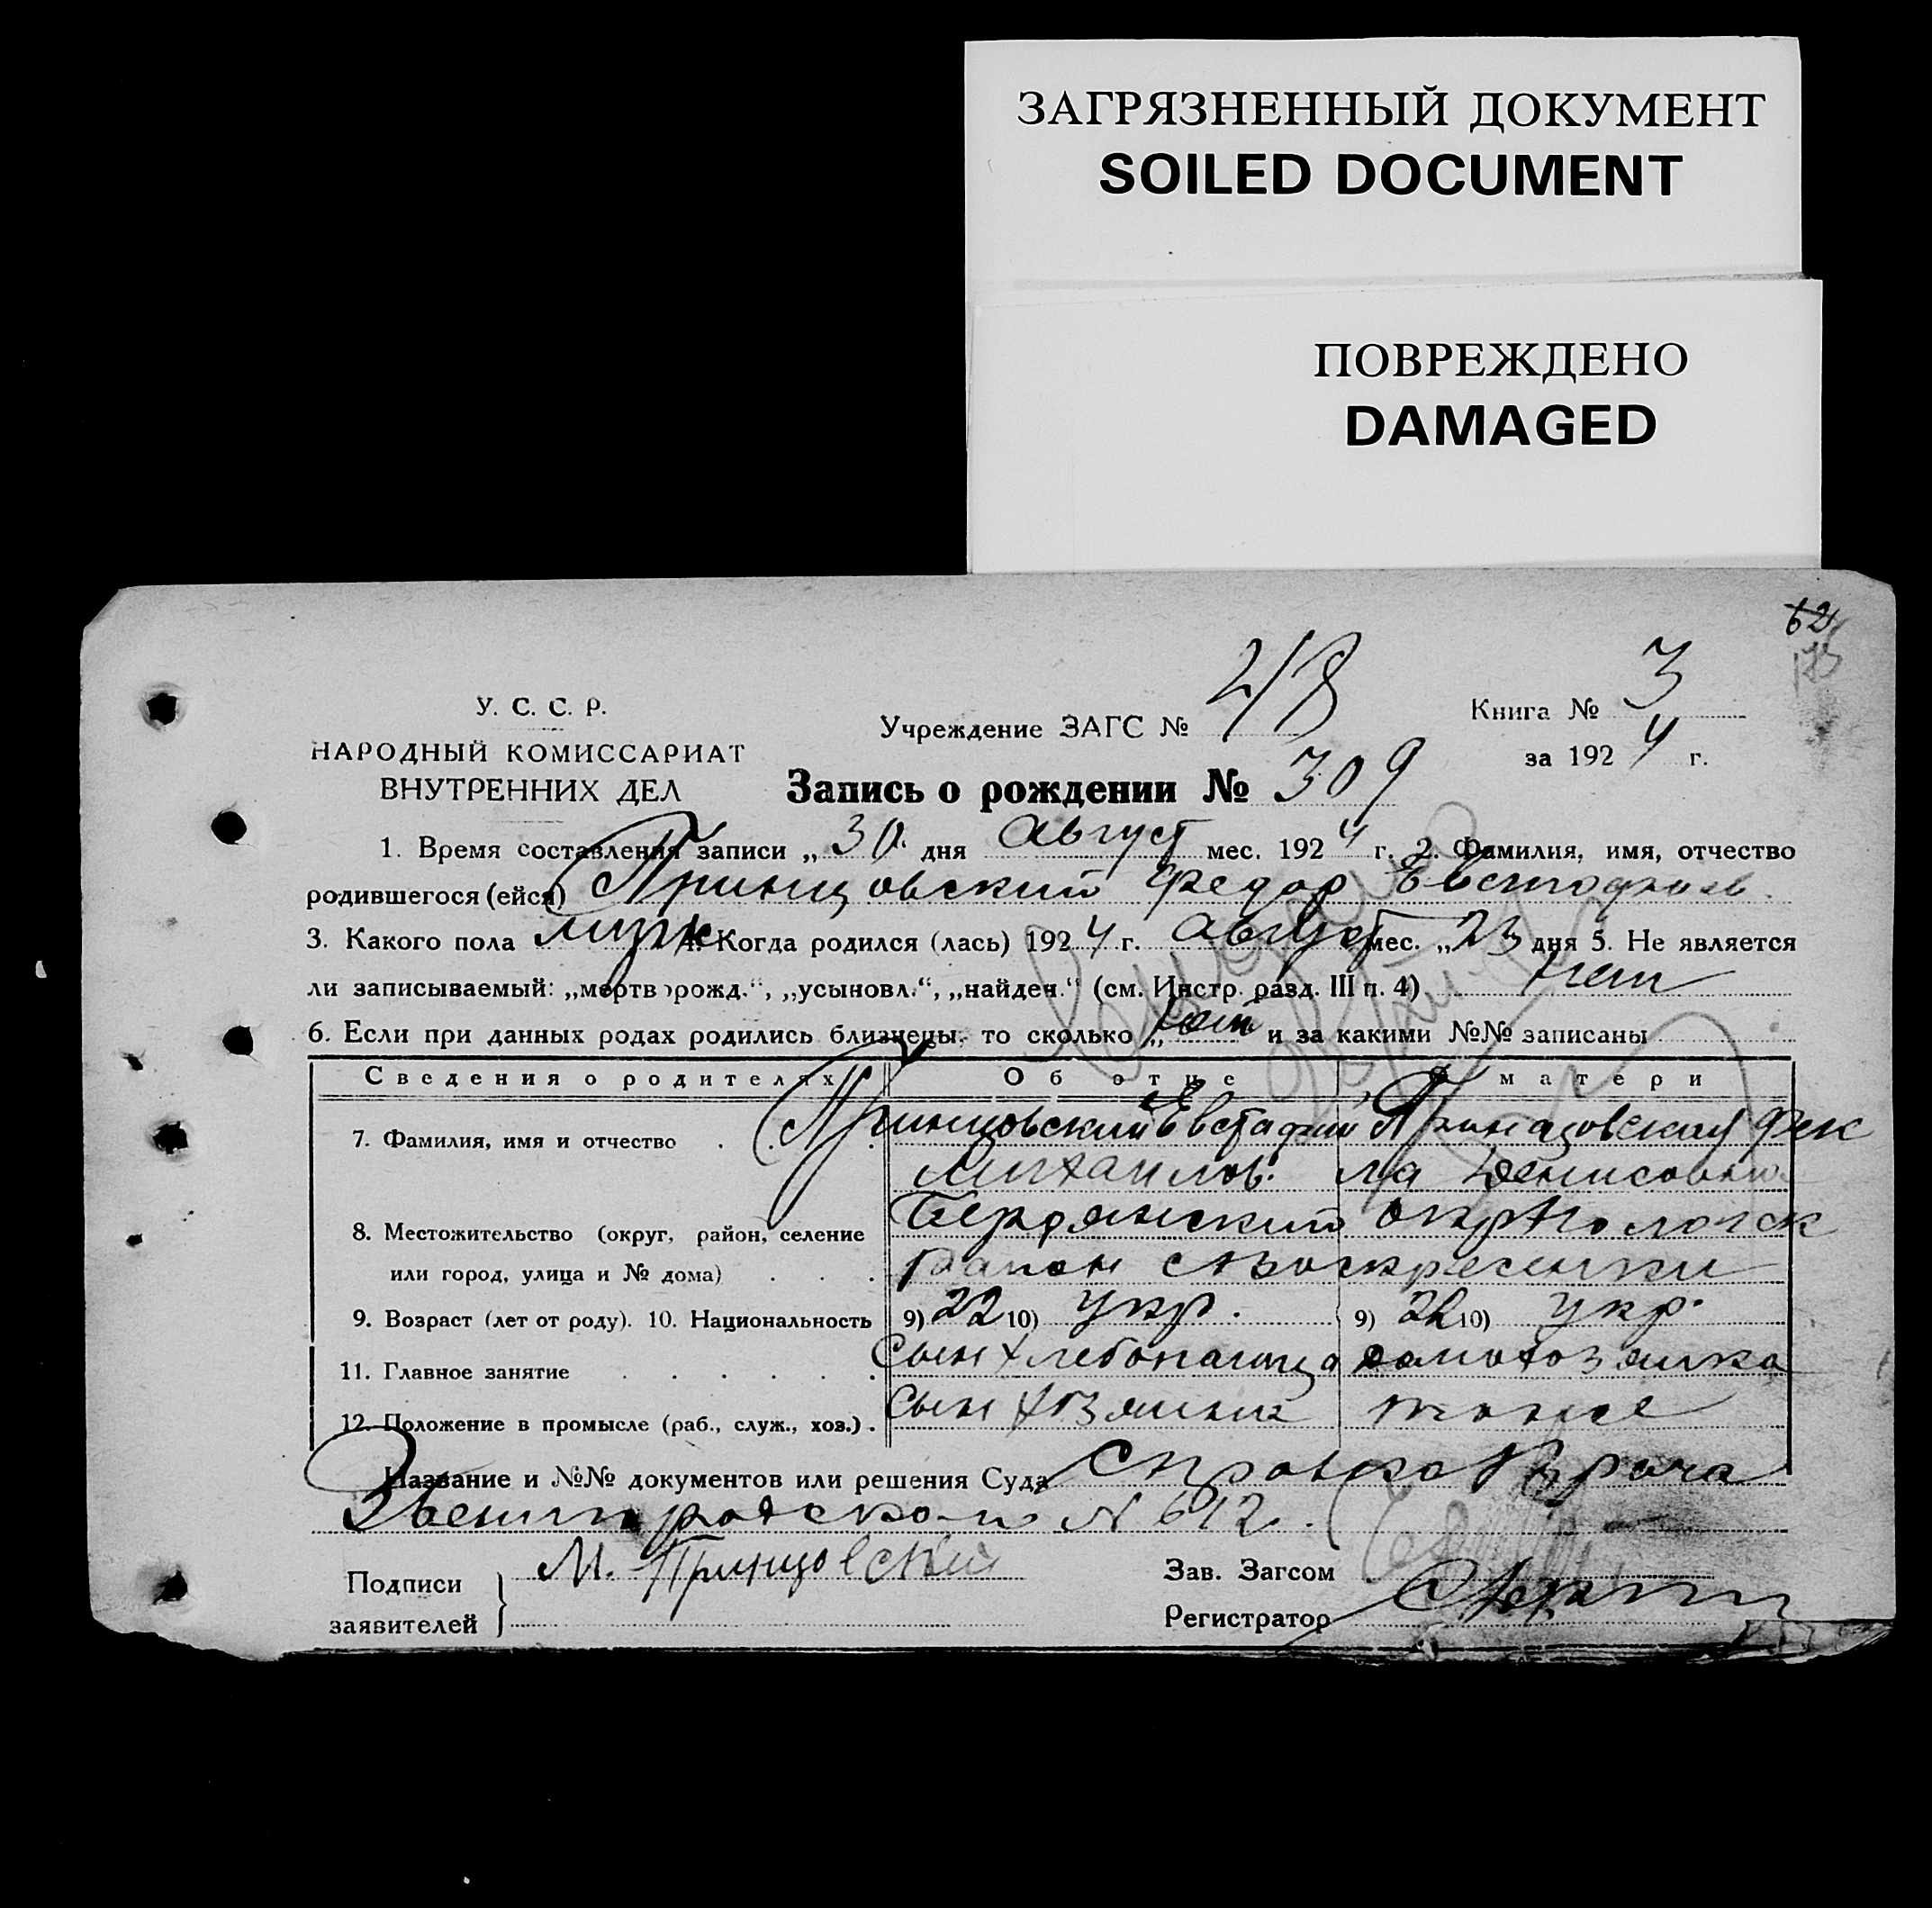 ЗАГРЯЗНЕННЫЙ ДОКУМЕНТ
SOILED DOCUMENT
ПОВРЕЖДЕНО
DAMAGED
62
У. С. С. Р.
НАРОДНЫЙ КОМИССАРИАТ
ВНУТРЕННИХ ДЕЛ
Учреждение ЗАГС №
Книга № 3
за 1924 г.
Запись о рождении № 309
1. Время составления записи „30" дня Август мес. 1924 г. 2. Фамилия, имя, отчество
родившегося (ейся) Принцовский Федор Евстафиев.
3. Какого пола муж 4. Когда родился (лась) 1924 г. Август мес. „23" дня 5. Не является
ли записываемый: „мертворожд.“, „усыновл.“, „найден.“ (см. Инстр. разд. III п. 4) нет
6. Если при данных родах родились близнецы, то сколько „нет" и за какими №№ записаны
Сведения о родителях Об отце О матери
7. Фамилия, имя и отчество Принцовский Евстафий Принцовская Фек
Михайлов. ла Денисовна
8. Местожительство (округ, район, селение Бердянский окр Пологск
или город, улица и № дома) район с Воскресенки
9. Возраст (лет от роду). 10. Национальность 9) 22 10) укр. 9) 22 10) укр.
11. Главное занятие Сын хлебопашца домохозяйка
12. Положение в промысле (раб., служ., хоз.) Сын хозяина тоже
Название и №№ документов или решения Суда Справка Врача
№ 612.
Подписи М. Принцовский Зав. Загсом
заявителей Регистратор